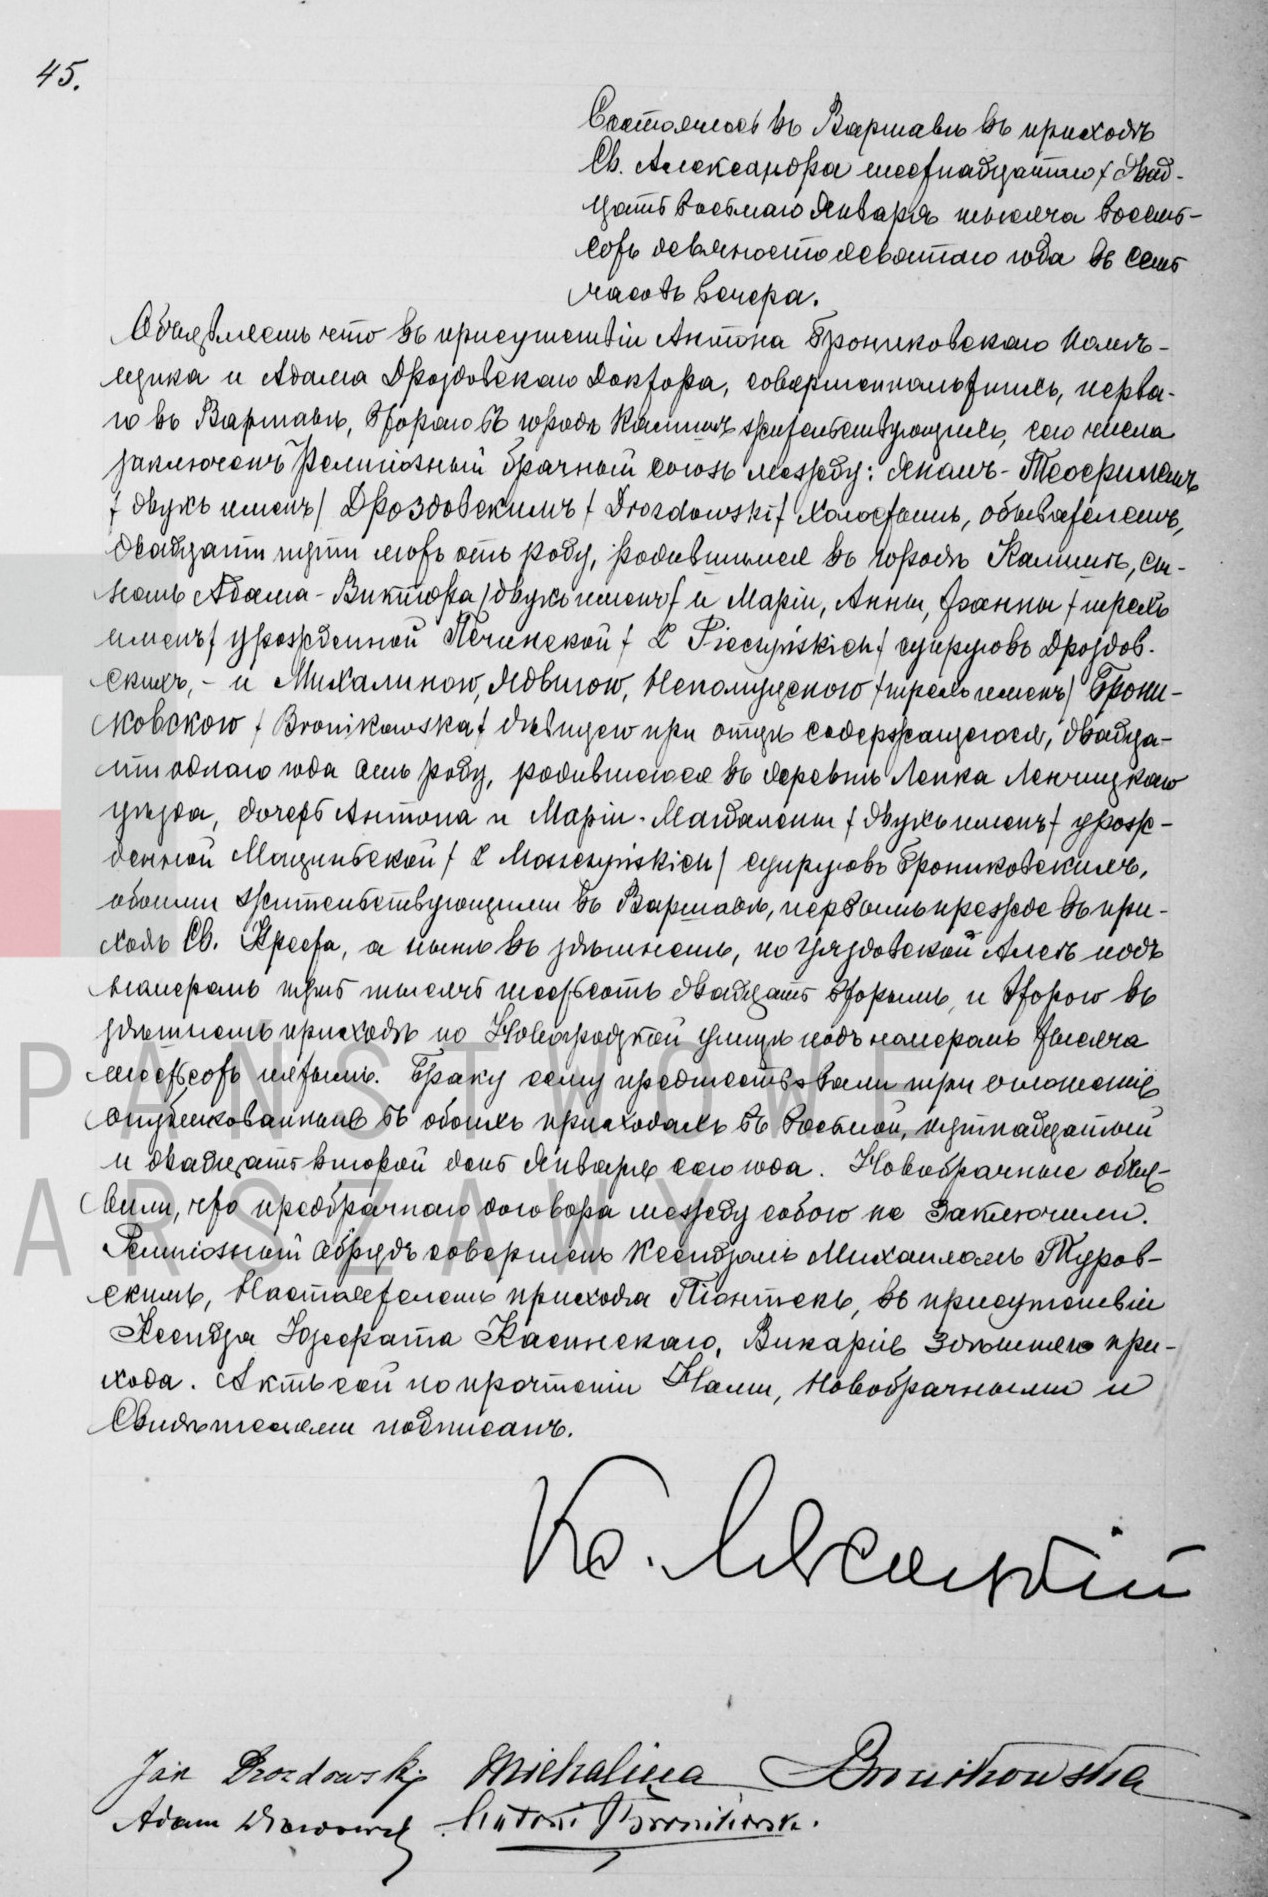 45.
Состоялось въ Варшавѣ въ приходѣ
Св. Александра шестнадцатаго / двад-
цать восьмаго Января тысяча восемь-
сотъ девяностодевятаго года въ семь
часовъ вечера.
Объявляемъ что въ присутствіи Антона Брониковскаго Помѣ-
щика и Адама Дроздовскаго Доктора, совершеннолѣтнихъ, перва-
го въ Варшавѣ, втораго въ городѣ Калишѣ жительствующихъ, сего числа
заключенъ религіозный брачный союзъ между: Яномъ-Теофилемъ
/ двухъ именъ / Дроздовскимъ / Drozdowski / холостымъ, обывателемъ,
двадцати пяти лѣтъ отъ роду, родившимся въ городѣ Калишѣ, сы-
номъ Адама-Виктора / двухъ именъ / и Маріи, Анны, Іоанны / трехъ
именъ / урожденной Печинской / z Pieczyńskich / супруговъ Дроздов-
скихъ, - и Михалиною, Ядвигою, Непомуценою / трехъ именъ / Брони-
ковскою / Bronikowska / дѣвицею при отцѣ содержащеюся, двадца-
тиоднаго года отъ роду, родившеюся въ деревнѣ Лепка Ленчицкаго
уѣзда, дочерью Антона и Маріи-Магдалены / двухъ именъ / урож-
денной Мощиньской / z Moszczyńskich / супруговъ Брониковскихъ,
обоими жительствующими въ Варшавѣ, первымъ прежде въ при-
ходѣ Св. Креста, а нынѣ въ здѣшнемъ, по Уяздовской Аллеѣ подъ
номеромъ пять тысячъ шестьсотъ двадцать вторымъ, и второю въ
здѣшнемъ приходѣ по Новогродзкой улицѣ подъ номеромъ тысяча
шестьсотъ пятымъ. Браку сему предшествовали три оглашенія
опубликованныя въ обоихъ приходахъ въ восьмой, пятнадцатый
и двадцать второй день Января сего года. Новобрачные объя-
вили, что предбрачнаго договора между собою не заключили.
Религіозный обрядъ совершенъ Ксендзомъ Михаиломъ Туров-
скимъ, Настоятелемъ прихода Піонтекъ, въ присутствіи
Ксендза Юзефата Касинскаго, Викарія здѣшняго при-
хода. Актъ сей по прочтеніи Нами, Новобрачными и
Свидѣтелями подписанъ.
Кс.
Jan Drozdowski Michalina Bronikowska
Adam Drozdowski Antoni Bronikowski.
PAŃSTWOWE
ARSZAWY